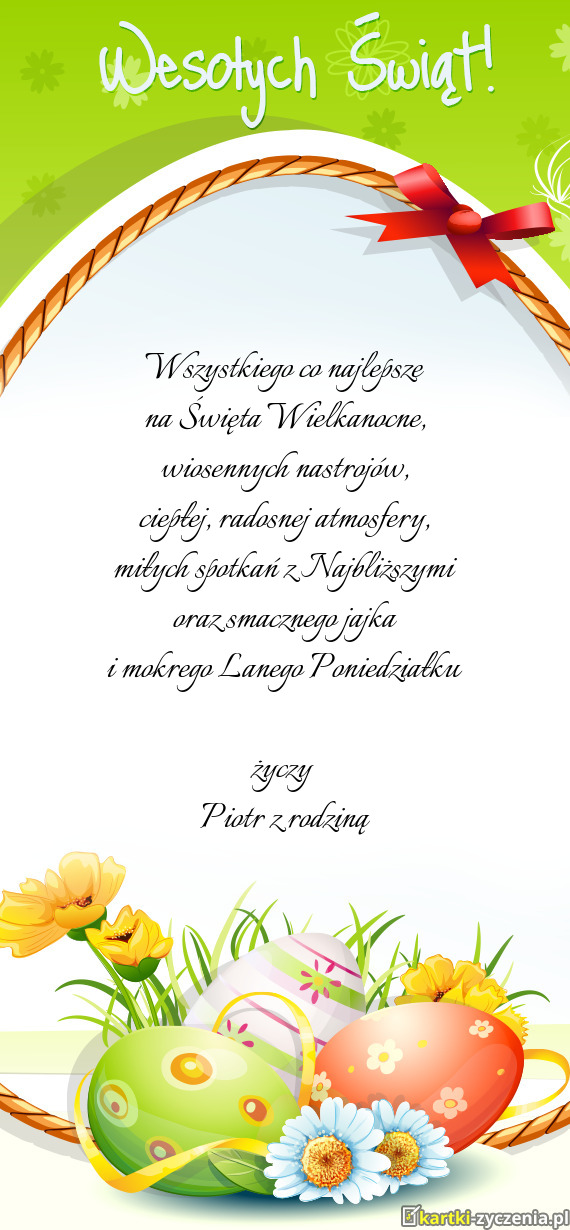 Wesołych Świąt!
Wszystkiego co najlepsze
na Święta Wielkanocne,
wiosennych nastrojów,
ciepłej, radosnej atmosfery,
miłych spotkań z Najbliższymi
oraz smacznego jajka
i mokrego Lanego Poniedziałku
życzy
Piotr z rodziną
kartki-zyczenia.pl